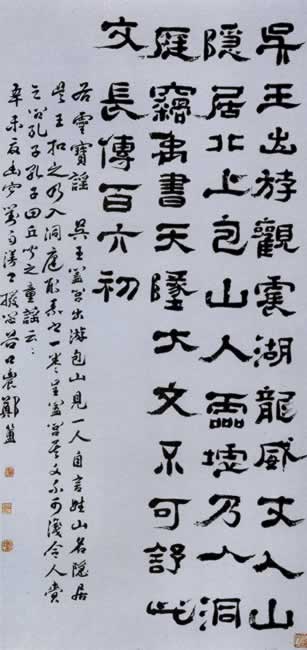 吳王出游觀震湖龍威丈人山
隱居北上包山入靈墟乃入洞
庭竊禹書天墜大文不可舒此
文長傳百六初
右靈寶謠 吳王闔閭出游包山見一人自言姓山名隱居
吳王扣之乃入洞庭取素書一卷呈闔閭其文不可識令人賫
之問孔子孔子曰丘聞之童謠云云
辛未 谷口農鄭簠